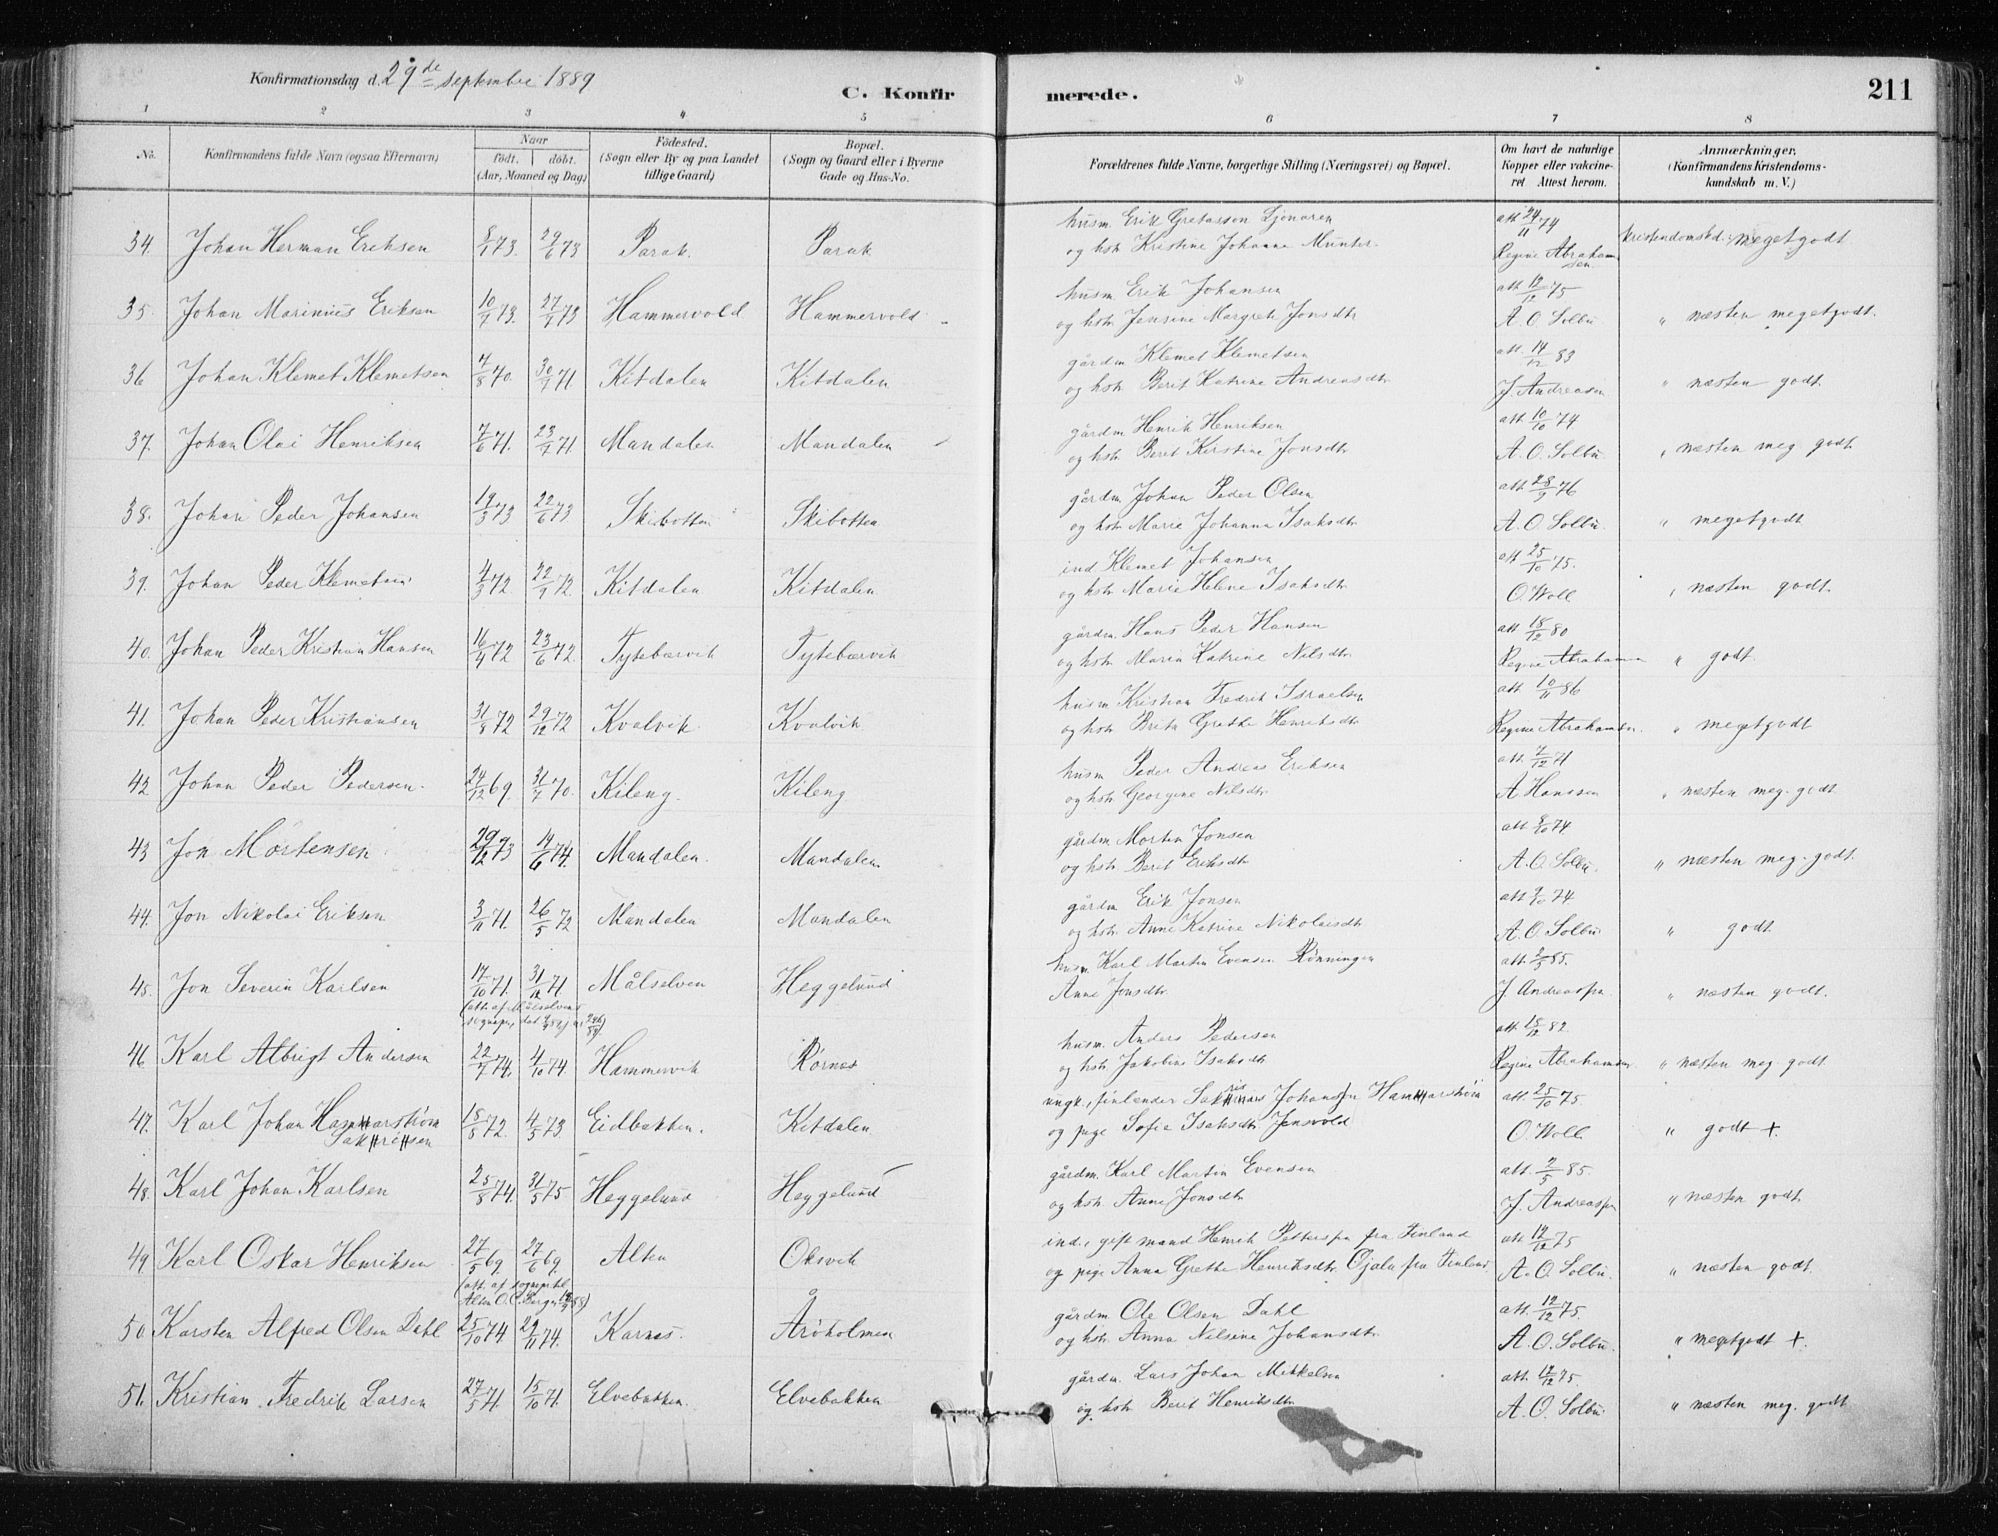 Konfirmationsdag d. 29de september 1889
C. Konfirmerede.
211
1 2 3 4 5 6 7 8
No.
Konfirmandens fulde Navn (ogsaa Efternavn)
Naar
födt. döbt.
(Aar, Maaned og Dag)
Födested.
(Sogn eller By og paa Landet
tillige Gaard)
Bopæl.
(Sogn og Gaard eller i Byerne
Gade og Hus-No.
Forældrenes fulde Navne, borgerlige Stilling (Næringsvei) og Bopæl.
Om havt de naturlige
Kopper eller vakcine-
ret Attest herom.
Anmærkninger.
(Konfirmandens Kristendoms-
kundskab m. V.)
34. Johan Herman Eriksen 8/1 73. 29/6 73 Parak. Parak husm. Erik Gretasson Ljonaren att 24/11 79
og hstr Kristine Johanne Munter. Regine Abrahamsen kristendomskd. megetgodt
35. Johan Marinius Eriksen 10/7 73. 27/7 73 Hammervold Hammervold husm. Erik Johansen att 12/12 75
og hstr Jensine Margreth Jonsdtr A. O. Solbu. " næsten megetgodt.
36 Johan Klemet Klemetsen 4/8 70. 30/7 71 Kitdalen Kitdalen gårdm Klemet Klemetsen att 14/12 83
og hstr Berit Katrine Andreasdtr J. Andreasen " næsten godt.
37. Johan Olai Henriksen 7/6 71. 23/7 71 Mandalen Mandalen gårdm Henrik Henriksen att 10/10 74
og hstr Berit Kirstine Jonsdtr A. O. Solbu " næsten meg godt
38. Johan Peder Johansen 19/3 73 22/6 73 Skibotten Skibotten gårdm Johan Peder Olsen att 28/9 76
og hstr Marie Johanna Isaksdtr A. O. Solbu. " megetgodt
39. Johan Peder Klemetsen 4/3 72 22/9 72. Kitdalen Kitdalen ind Klemet Johansen att 25/10 75.
og hstr Marie Helene Isaksdtr O. Woll " næsten godt.
40. Johan Peder Kristian Hansen 16/4 72 23/6 72. Tytebærvik Tytebærvik gårdm. Hans Peder Hansen att 18/12 80
og hstr Marin Katrine Nilsdtr Regine Abrahamsen " godt.
41. Johan Peder Kristiansen 31/8 72 29/12 72 Kvalvik. Kvalvik husm Kristian Fredrik Israelsen att 10/11 86
og hstr Brita Grethe Henriksdtr Regine Abrahamsen. " megetgodt
42 Johan Peder Pedersen. 24/12 69. 31/7 70. Kileng. Kileng husm Peder Andreas Eriksen att 7/12 71
og hstr Georgine Nilsdtr A Hanssen " næsten meg. godt.
43 Jon Mortensen 29/12 73 14/6 74. Mandalen. Mandalen gårdm Morten Jonsen att 8/10 74.
og hstr Berit Eriksdtr A. O. Solbu. " næsten meg. godt.
44. Jon Nikolai Eriksen 3/11 71. 26/5 72 Mandalen Mandalen gårdm Erik Jonsen att 9/10 74
og hstr Anne Katrine Nikolaisdtr A. O. Solbu " godt.
45. Jon Severin Karlsen 17/10 71. 31/12 71 Målselven Heggelund husm. Karl Martin Evensen Rønningen att 2/5 85.
Anne Jonsdtr. J. Andreassen " næsten godt.
(att. af Målselvens
46 Karl Albrigt Andersen 22/7 74. 4/10 74 Hammervik Rørnes husm. Anders Pedersen att 15/12 82.
og hstr Jakobine Isaksdtr Regine Abrahamsen " næsten meg godt.
47. Karl Johan Hammarstrøm 18/5 72. 4/5 73 Eidbakken. Kitdalen ungk., finlænder Johansen Hammarstrøm att 25/10 75.
og pige Sofia Isaksdtr Jensvold O. Woll. " godt +.
48. Karl Johan Karlsen 25/8 74. 31/5 75 Heggelund Heggelund gårdm. Karl Martin Evensen att. 2/5 85.
og hstr Anne Jonsdtr J. Andreassen " næsten godt.
49 Karl Oskar Henriksen 27/5 69 27/6 69. Alten Oksvik ind., gift mand Henrik Petterssen fra Finland att 12/12 75
og pige Anna Grethe Henriksdtr. Ojala fra Finland. A. O. Solbu. " næsten godt.
50 Karsten Alfred Olsen Dahl 25/10 74 29/11 74. Karnes. Årøholmen gårdm Ole Olsen Dahl att. 12/12 75.
og hstr Anna Nilsine Johansdtr. A. O. Solbu. " megetgodt +
51. Kristian Fredrik Larsen 27/5 71. 15/10 71. Elvebakken. Elvebakken gårdm. Lars Johan Mikkelsen att. 12/12 75
og hstr Berit Henriksdtr A. O. Solbu. " næsten meg. godt